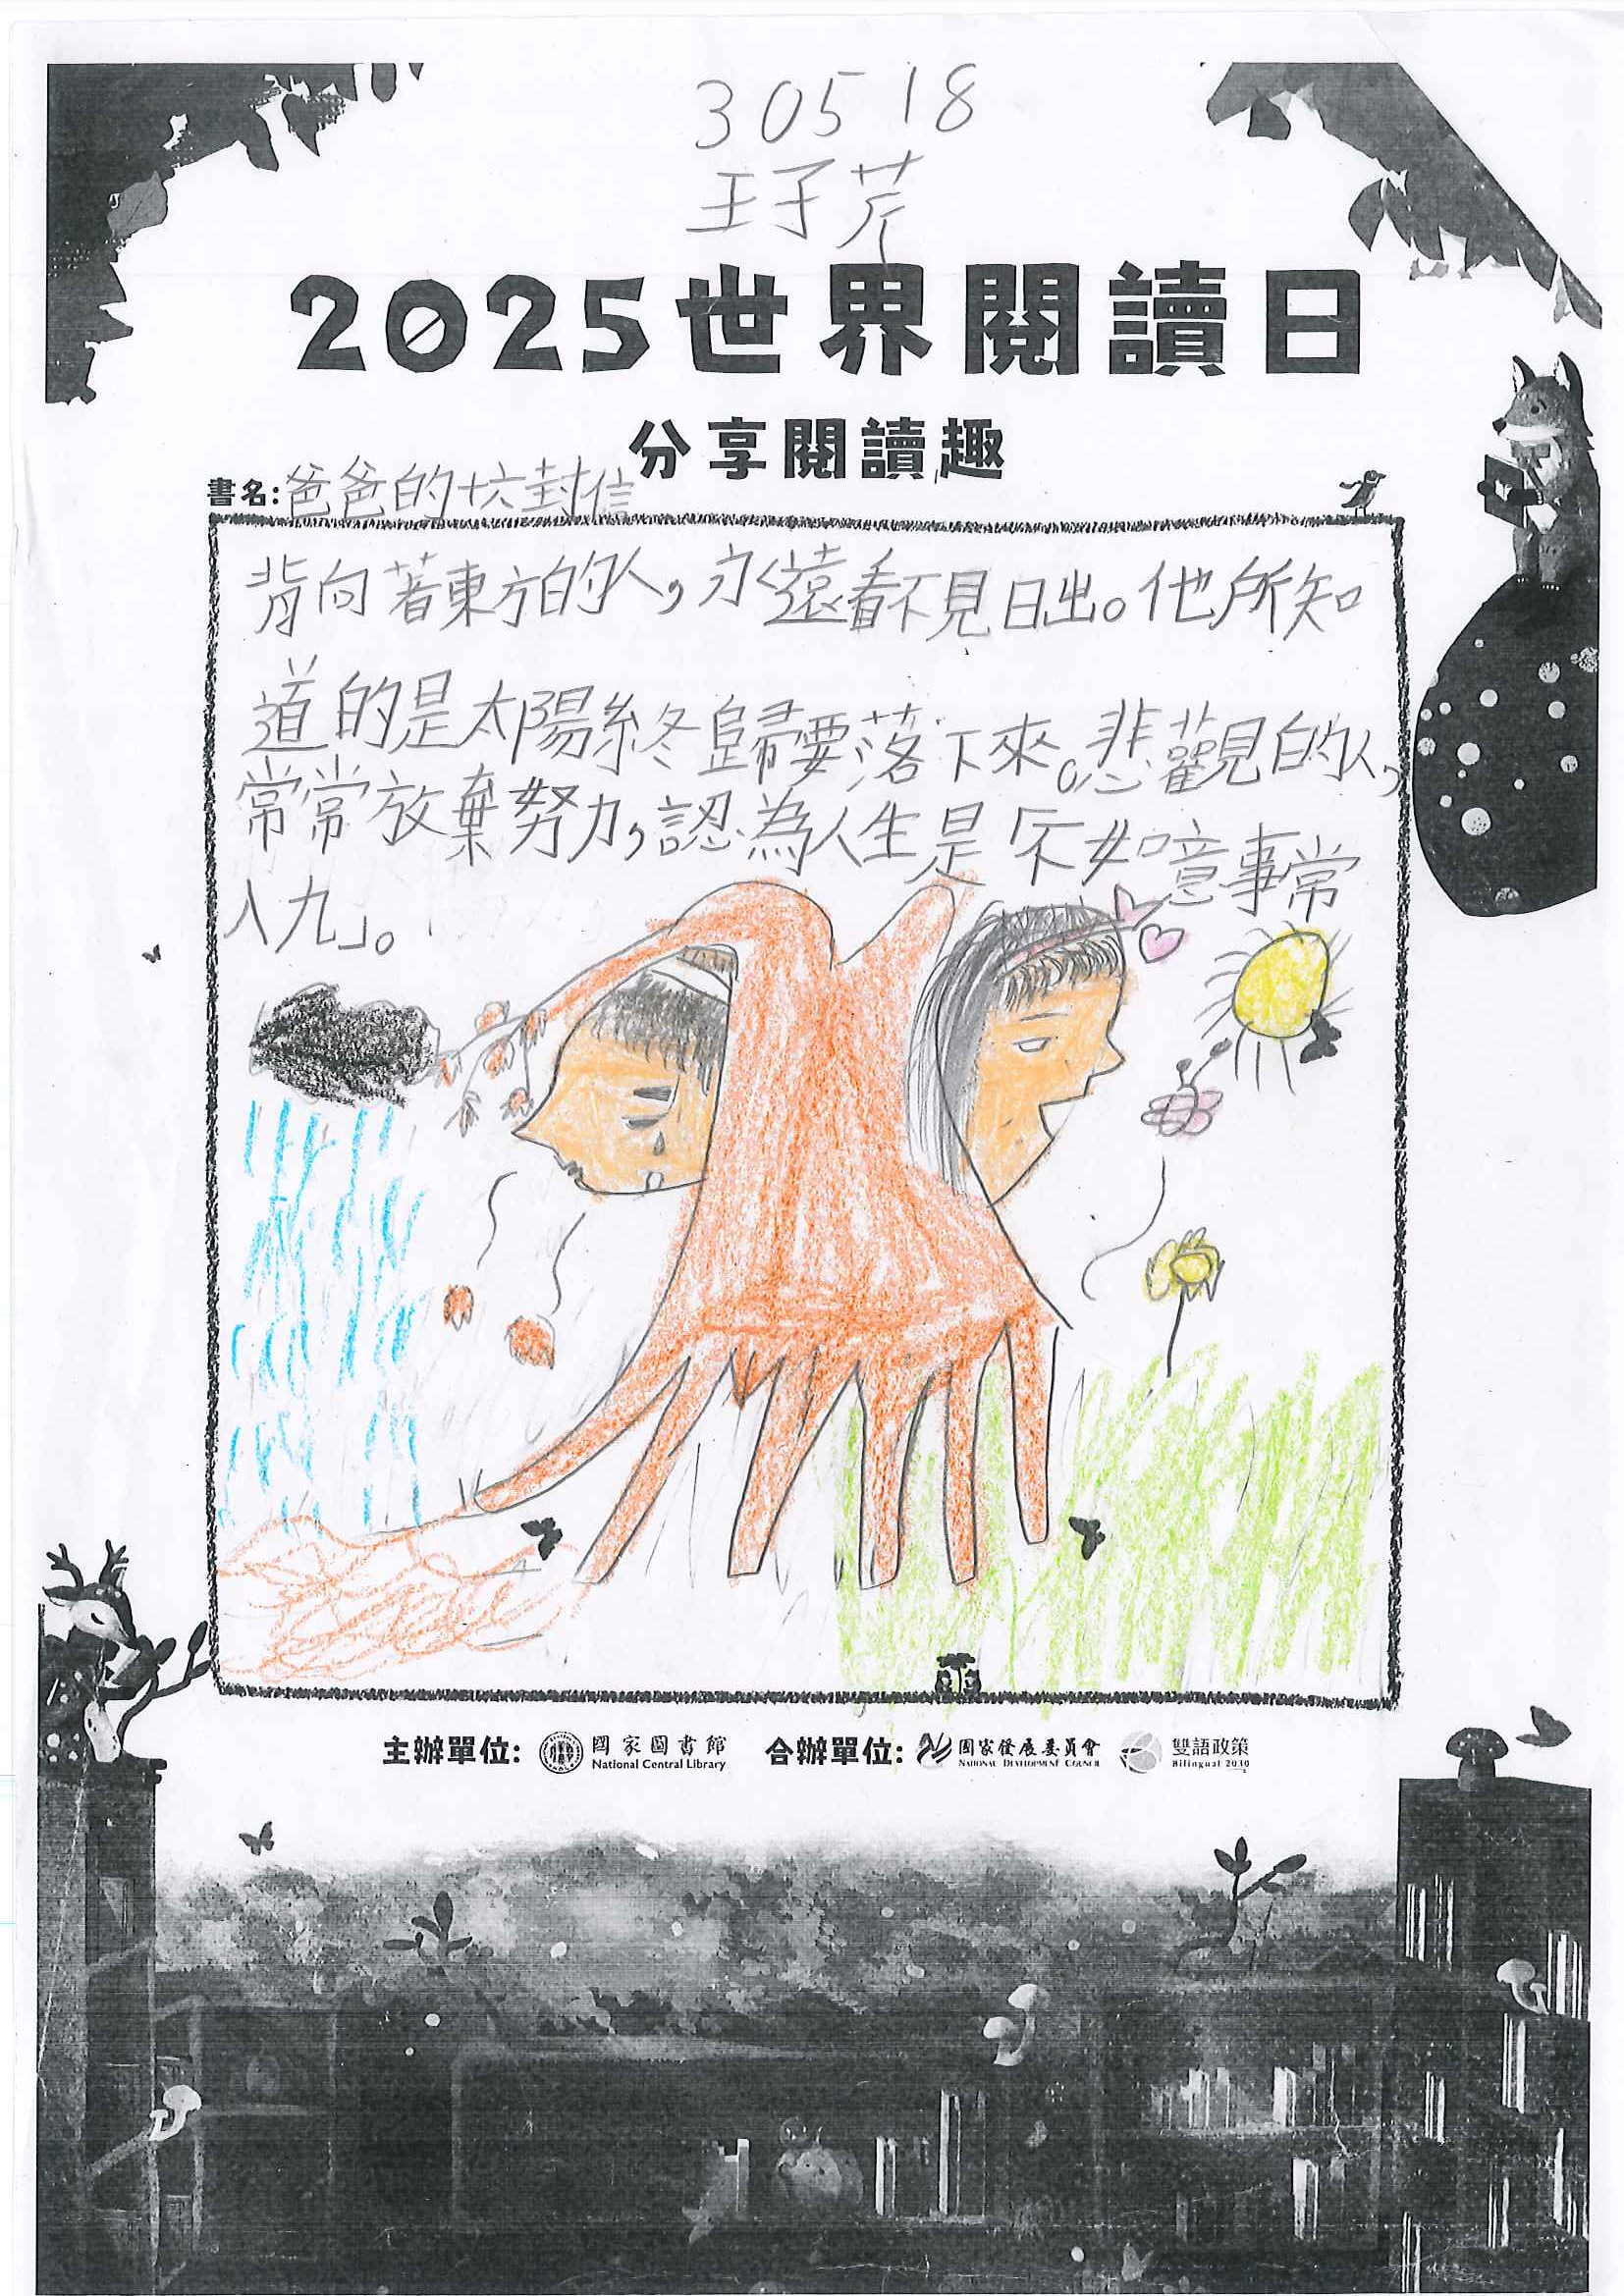 30518
王子芹
2025世界閱讀日
分享閱讀趣
書名:爸爸的十六封信
背向著東方的人,永遠看不見日出。他所知
道的是太陽終歸要落下來。悲觀的人,
常常放棄努力,認為人生是「不如意事常
八九」。
主辦單位: 國家圖書館 合辦單位: 國家發展委員會 雙語政策
National Central Library NATIONAL DEVELOPMENT COUNCIL Bilingual 2030